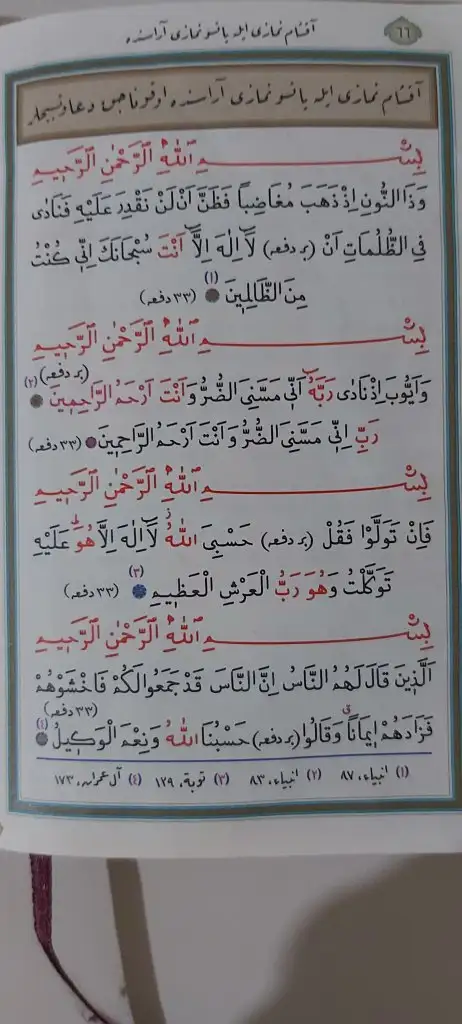 ٦٦ آقشام نمازى ايله ياتسو نمازى آراسنده
آقشام نمازى ايله ياتسو نمازى آراسنده اوقوناجق دعا وتسبيحلر
بِسْمِ اللّٰهِ الرَّحْمٰنِ الرَّحِيمِ
وَذَا النُّونِ اِذْ ذَهَبَ مُغَاضِبًا فَظَنَّ اَنْ لَنْ نَقْدِرَ عَلَيْهِ فَنَادٰى
فِي الظُّلُمَاتِ اَنْ (بر دفعه) لَٓا اِلٰهَ اِلَّٓا اَنْتَ سُبْحَانَكَ اِنّٖي كُنْتُ
مِنَ الظَّالِمٖينَ (١) (٣٣ دفعه)
بِسْمِ اللّٰهِ الرَّحْمٰنِ الرَّحِيمِ
وَاَيُّوبَ اِذْ نَادٰى رَبَّهُٓ اَنّٖي مَسَّنِيَ الضُّرُّ وَاَنْتَ اَرْحَمُ الرَّاحِمٖينَ (بر دفعه) (٢)
رَبِّ اِنّٖي مَسَّنِيَ الضُّرُّ وَاَنْتَ اَرْحَمُ الرَّاحِمٖينَ (٣٣ دفعه)
بِسْمِ اللّٰهِ الرَّحْمٰنِ الرَّحِيمِ
فَاِنْ تَوَلَّوْا فَقُلْ (بر دفعه) حَسْبِيَ اللّٰهُ لَٓا اِلٰهَ اِلَّا هُوَ عَلَيْهِ
تَوَكَّلْتُ وَهُوَ رَبُّ الْعَرْشِ الْعَظٖيمِ (٣) (٣٣ دفعه)
بِسْمِ اللّٰهِ الرَّحْمٰنِ الرَّحِيمِ
اَلَّذٖينَ قَالَ لَهُمُ النَّاسُ اِنَّ النَّاسَ قَدْ جَمَعُوا لَكُمْ فَاخْشَوْهُمْ
فَزَادَهُمْ اٖيمَانًا وَقَالُوا (بر دفعه) حَسْبُنَا اللّٰهُ وَنِعْمَ الْوَكٖيلُ (٣٣ دفعه) (٤)
(١) انبياء، ٨٧ (٢) انبياء، ٨٣ (٣) توبة، ١٢٩ (٤) آل عمران، ١٧٣